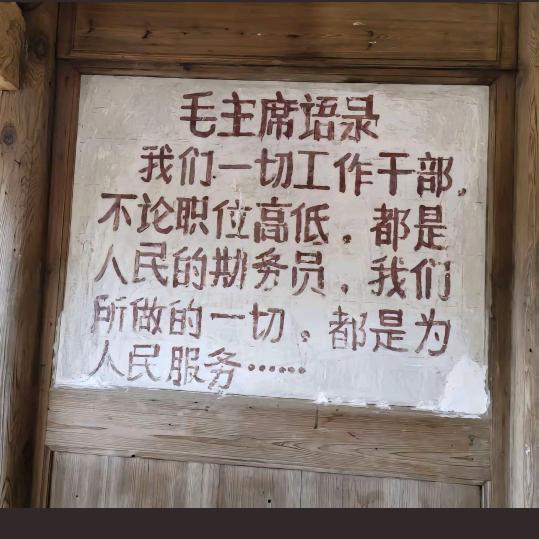 毛主席语录
我们一切工作干部,
不论职位高低,都是
人民的勤务员,我们
所做的一切,都是为
人民服务……